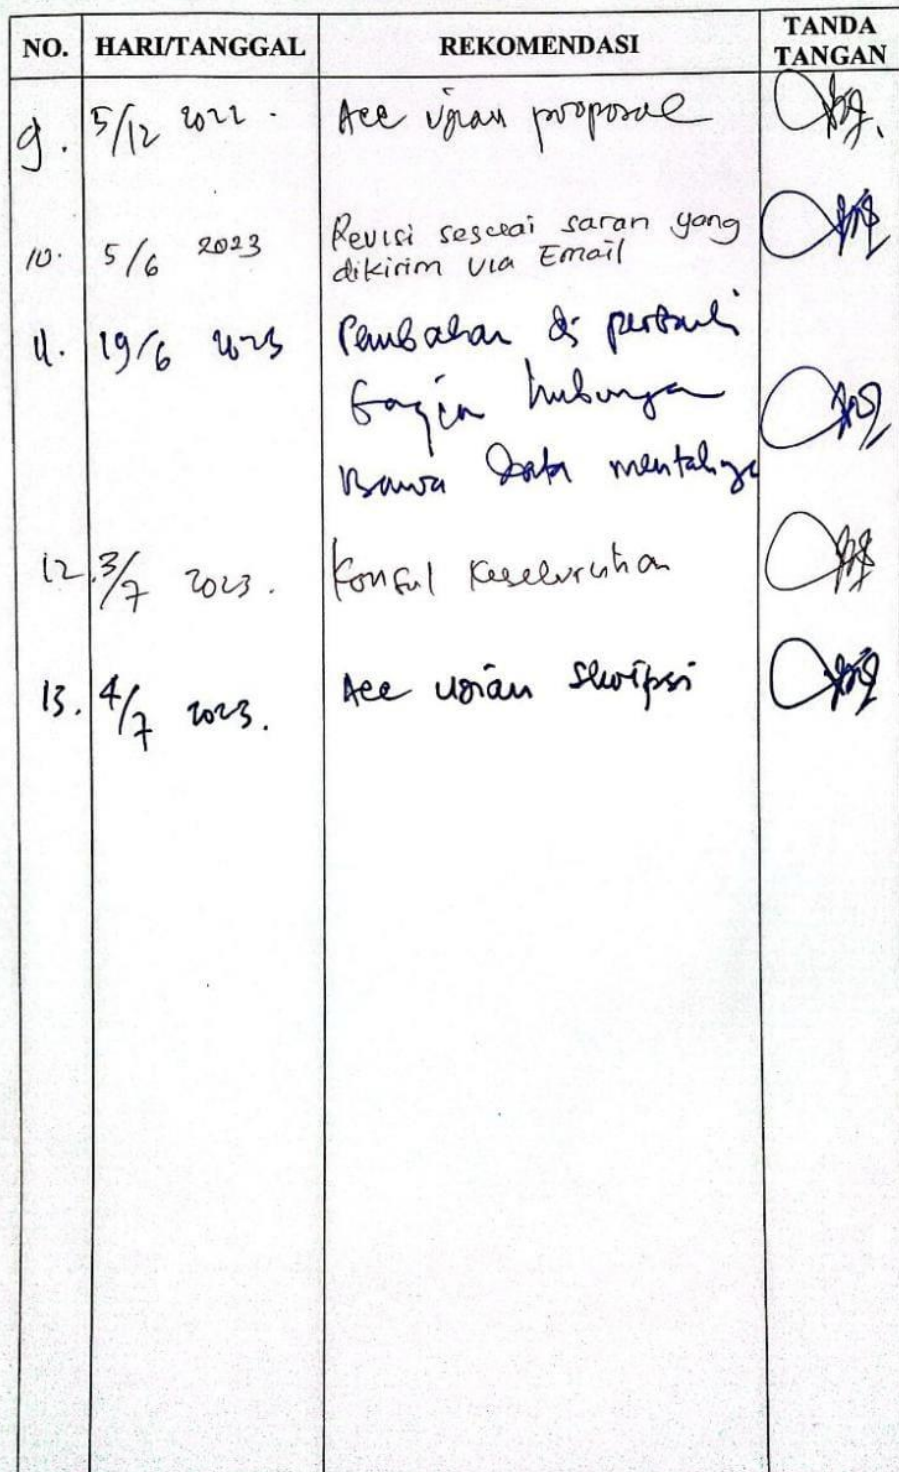 NO. HARI/TANGGAL REKOMENDASI TANDA TANGAN
9. 5/12 2022. Acc ujian proposal
10. 5/6 2023 Revisi sesuai saran yang
dikirim via Email
11. 19/6 2023 Pembahasan di perbaiki
Bagian hubungan
Bawa data mentahnya
12. 3/7 2023. Konsul Keseluruhan
13. 4/7 2023. Acc ujian Skripsi